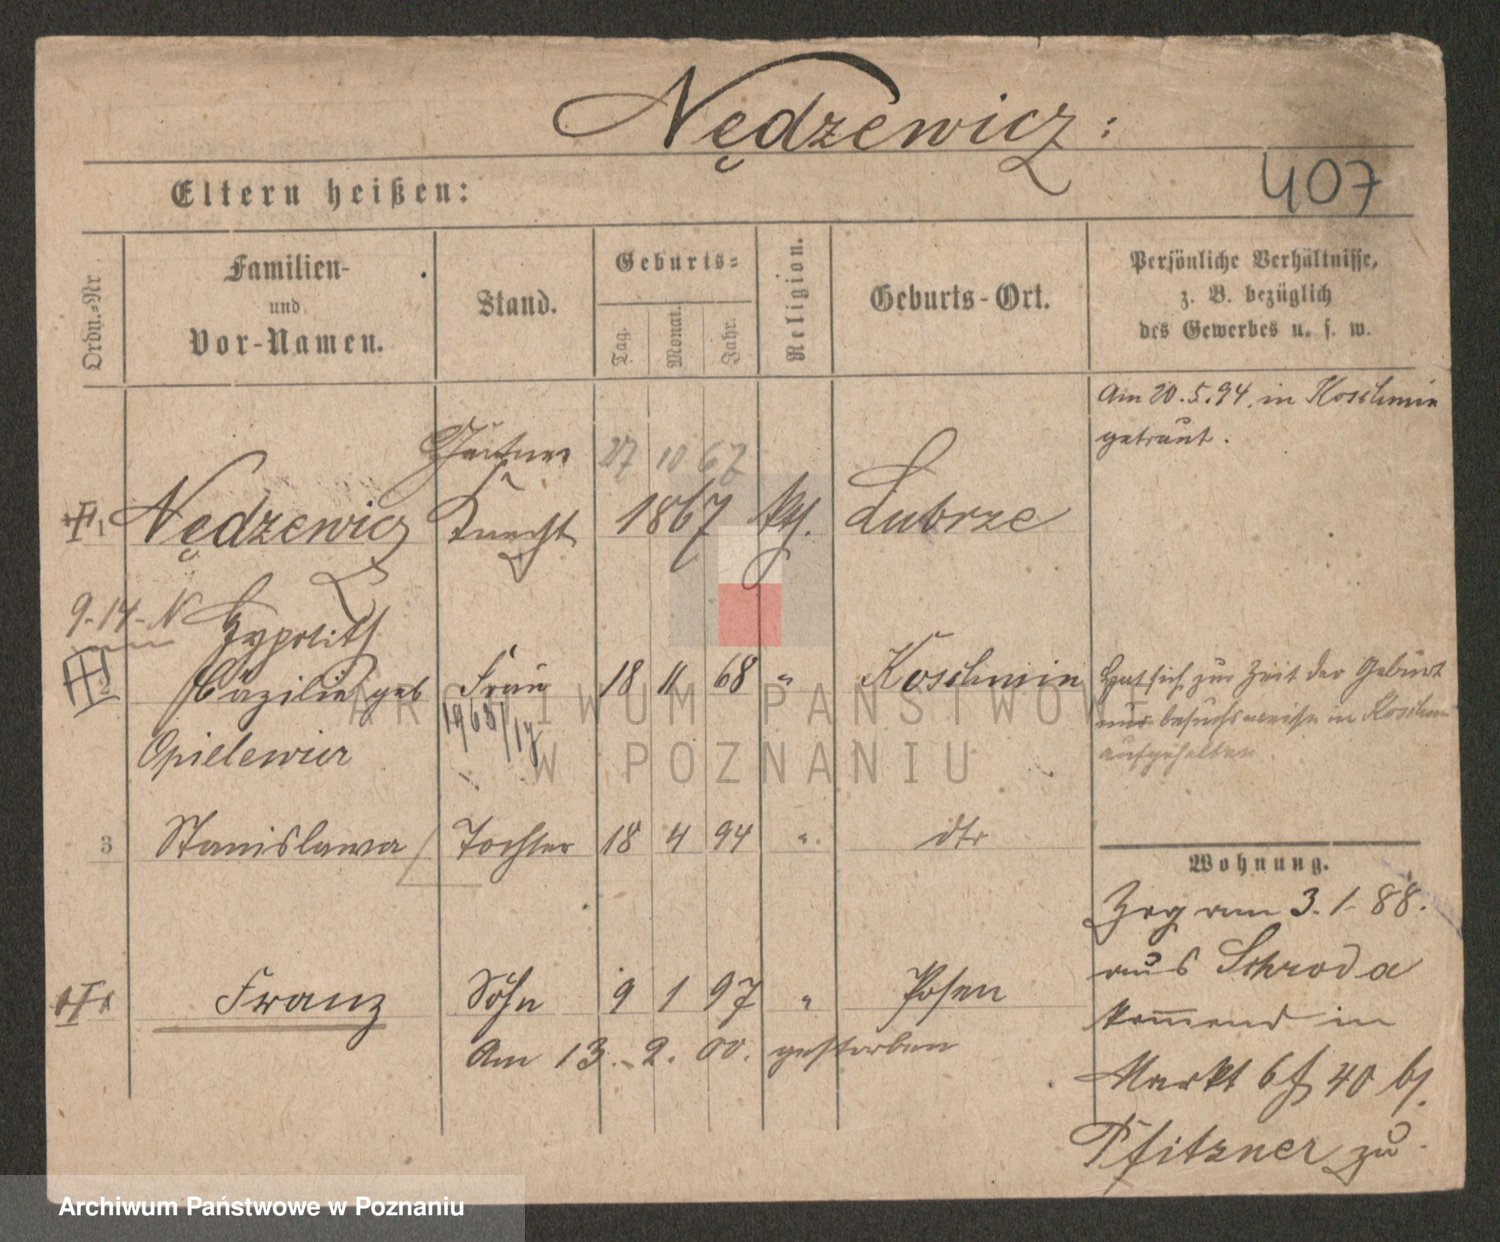 Nędzewicz:
407
Eltern heißen:
Ordn.-Nr
Familien-
und
Vor-Namen.
Stand.
Geburts-
Tag.
Monat.
Jahr.
Religion.
Geburts-Ort.
Persönliche Verhältnisse,
z. B. bezüglich
des Gewerbes u. s. w.
Am 20.5.94. in Koschmin
getraut.
27 10 67
1 Nędzewicz Knecht 1867 kth. Lubrze
9.14. N
Hypolith
2 Cäzilie geb Frau 18 11 68 " Koschmin
Opielewicz
Hat sich zur Zeit der Geburt
nur besuchsweise in Koschmin
aufgehalten
3 Stanislawa Tochter 18 4 94 " dto
Franz Sohn 9 1 97 " Posen
Am 13. 2. 00. gestorben
Wohnung.
Zog am 3.1.88.
aus Schroda
kommend in
Markt 40 bj.
Pfitzner zu
ARCHIWUM PAŃSTWOWE
W POZNANIU
Archiwum Państwowe w Poznaniu